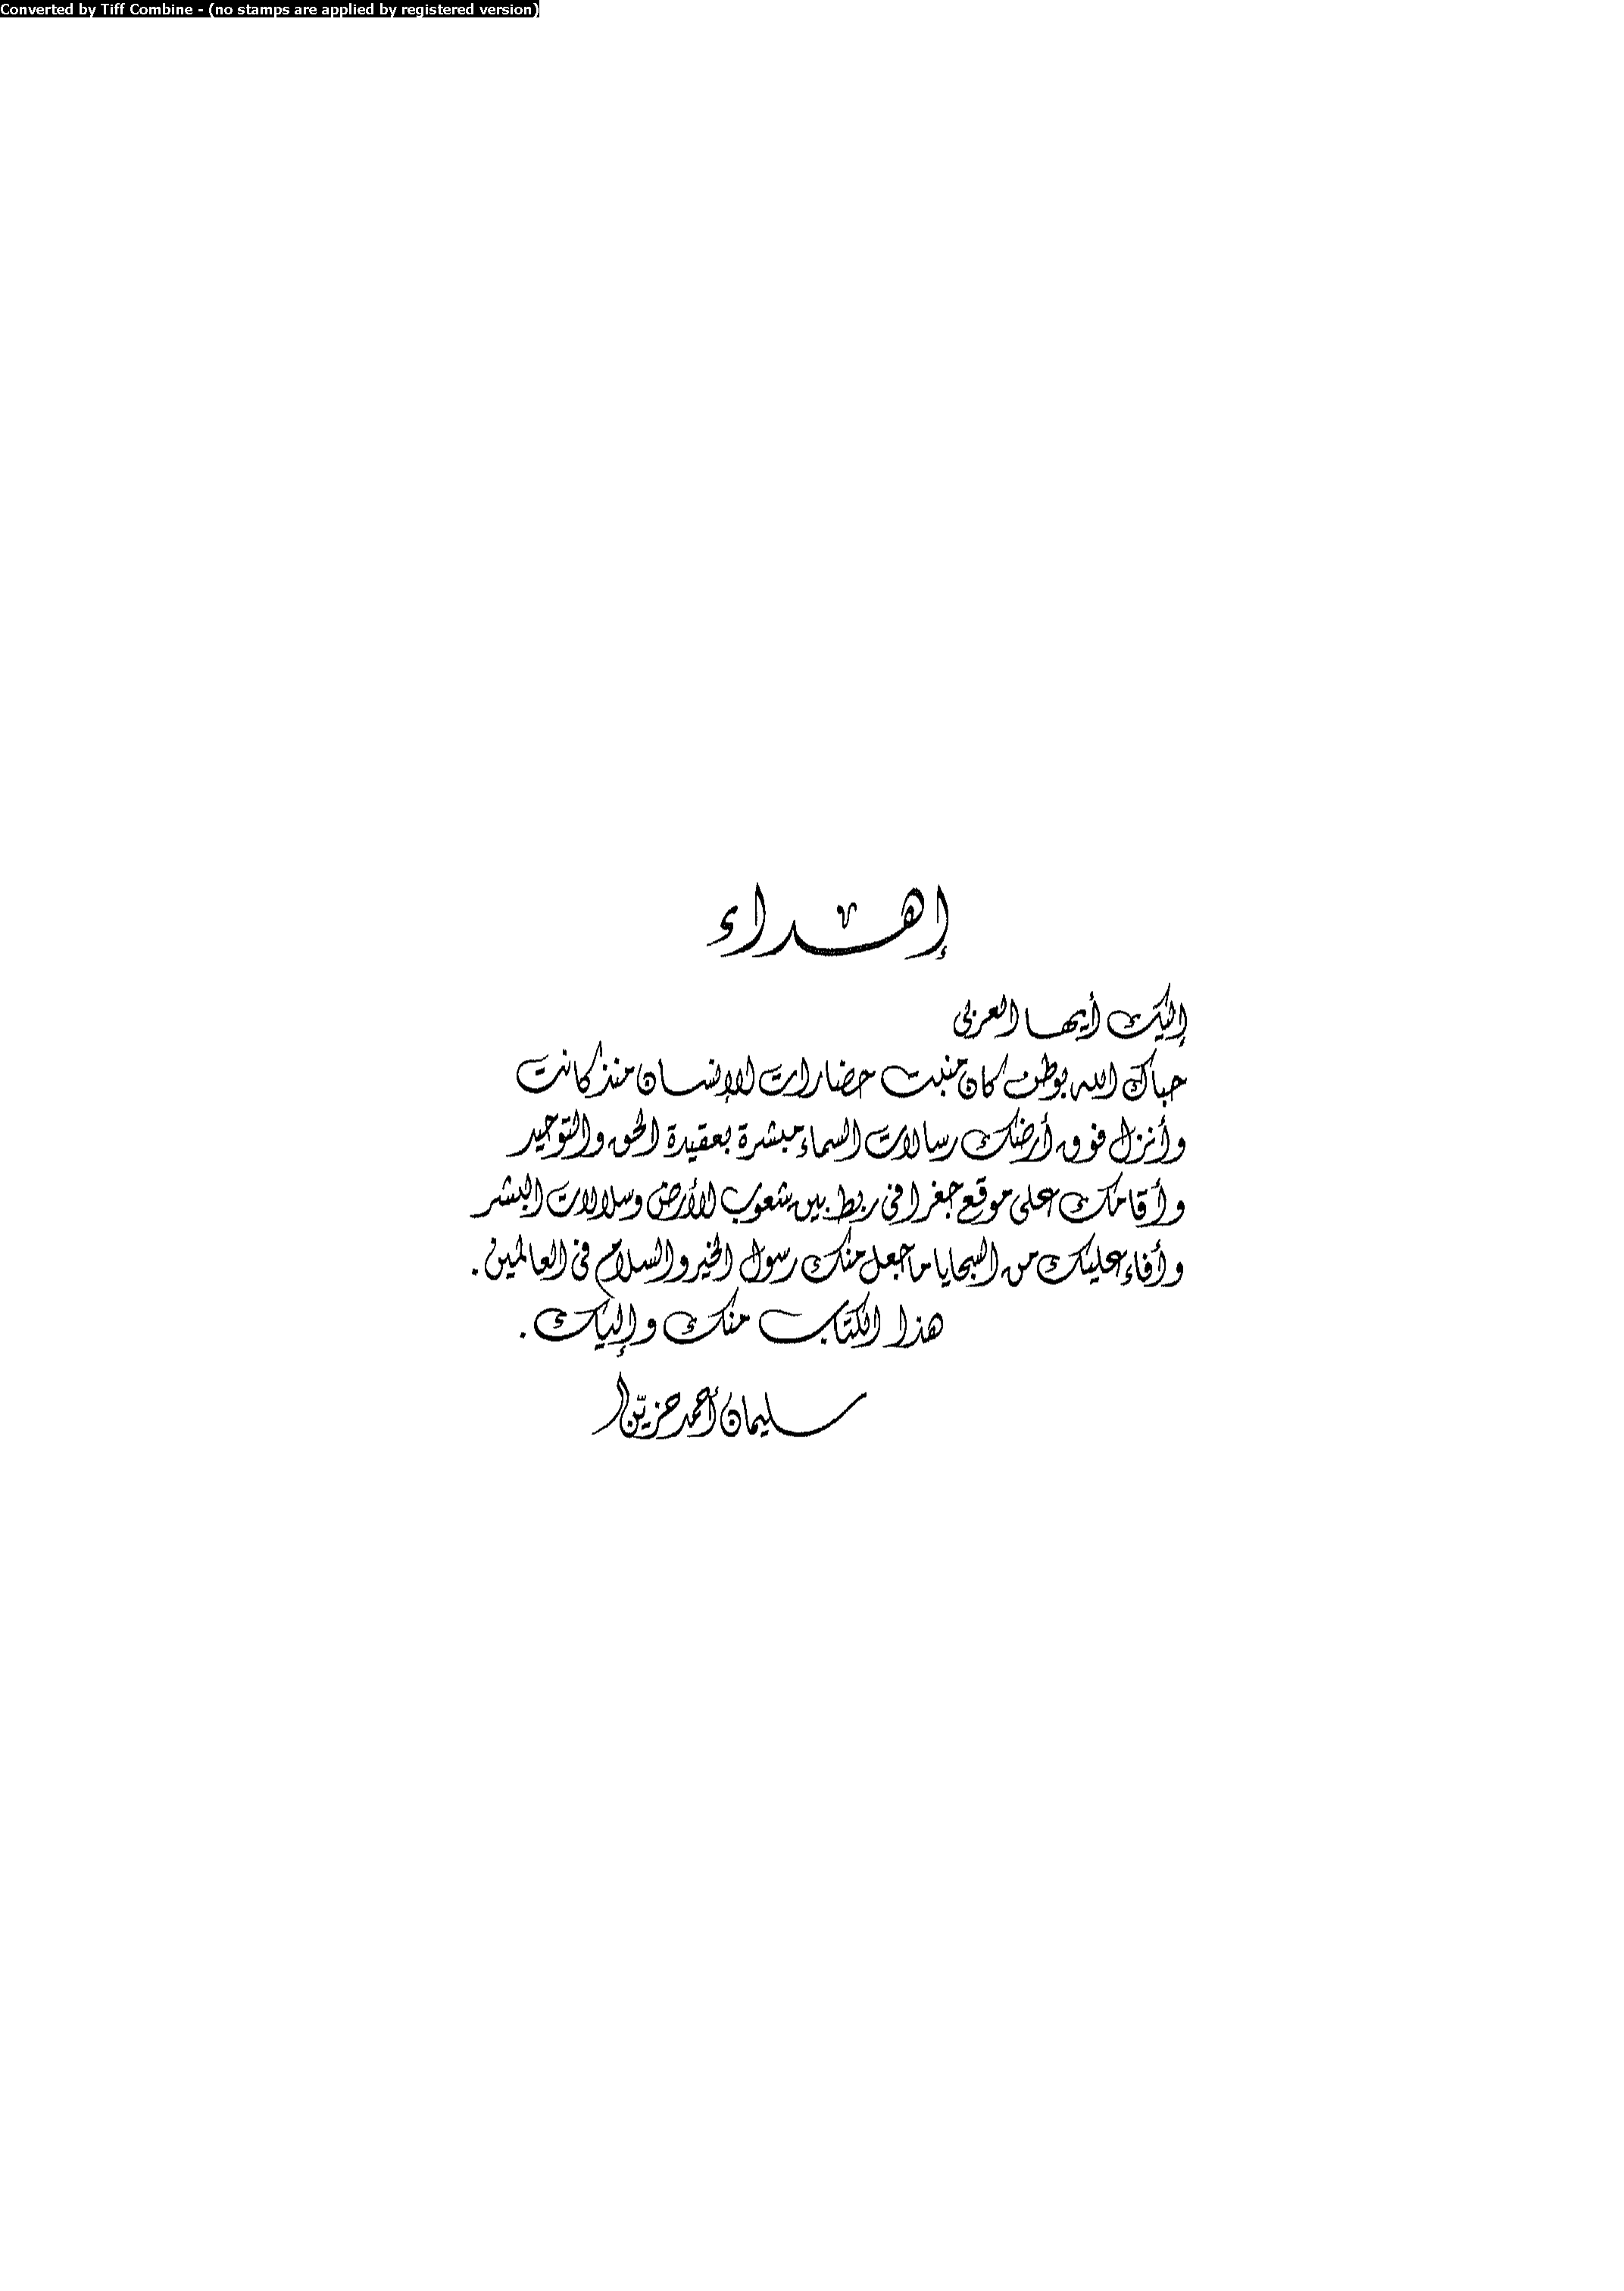 Converted by Tiff Combine - (no stamps are applied by registered version)
إهداء
إليك أيها العربى
حباك الله بوطن كان منبت حضارات الإنسان منذ كانت
وأنزل فوق أرضك رسالات السماء مبشرة بعقيدة الحق والتوحيد
وأقامك على موقع جغرافى ربط بين شعوب الأرض وسلالات البشر
وأفاء عليك من السجايا ما جعل منك رسول الخير والسلام فى العالمين .
هذا الكتاب منك وإليك .
سليمان أحمد حزيّن